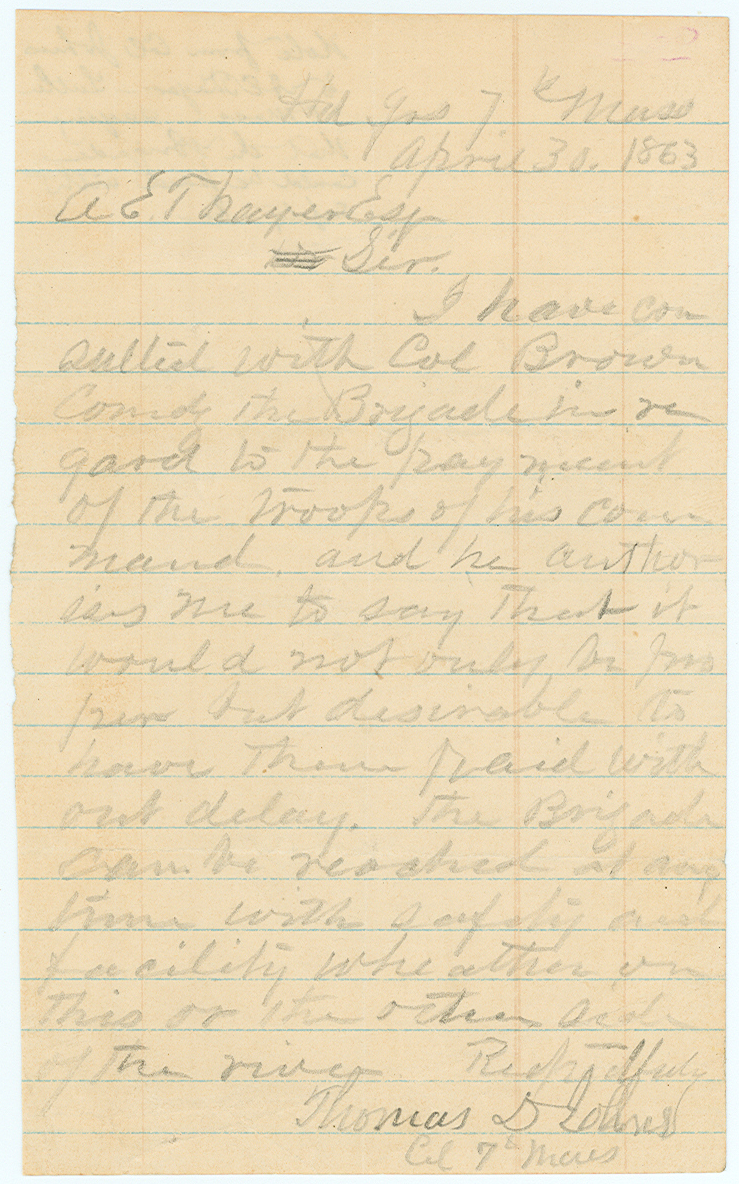 Hd Qrs 7th Mass
April 30. 1863
A E Thayer Esq
Sir.
I have con
sulted with Col Brown
Comdg the Brigade in re
gard to the payment
of the troops of his com
mand, and he author
ises me to say that it
would not only be pro
per but desirable to
have them paid with
out delay. The Brigade
can be reached at any
time with safety and
facility wheather on
this or the other side
of the river Respectfully
Thomas D Johns
Col 7th Mass